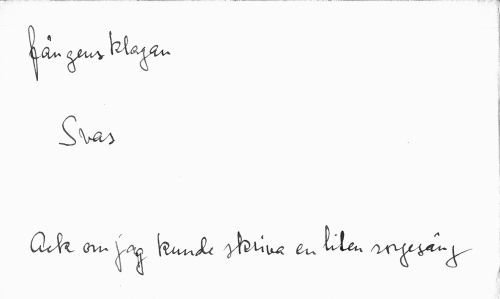 Fångens klagan
Svas
Ack om jag kunde skriva en liten sorgesång